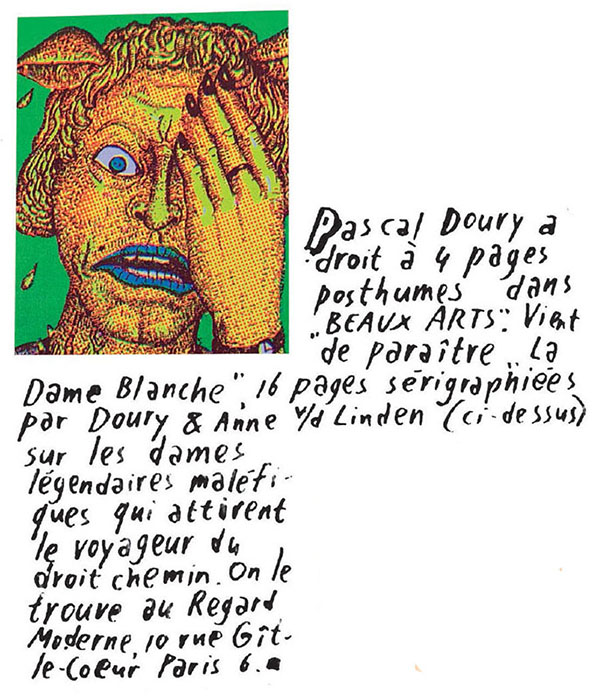 Pascal Doury a
droit à 4 pages
posthumes dans
"BEAUX ARTS". Vient
de paraître "La
Dame Blanche", 16 pages sérigraphiées
par Doury & Anne v/d Linden (ci-dessus)
sur les dames
légendaires maléfi-
ques qui attirent
le voyageur du
droit chemin. On le
trouve au Regard
Moderne, 10 rue Gît-
le-Coeur Paris 6.